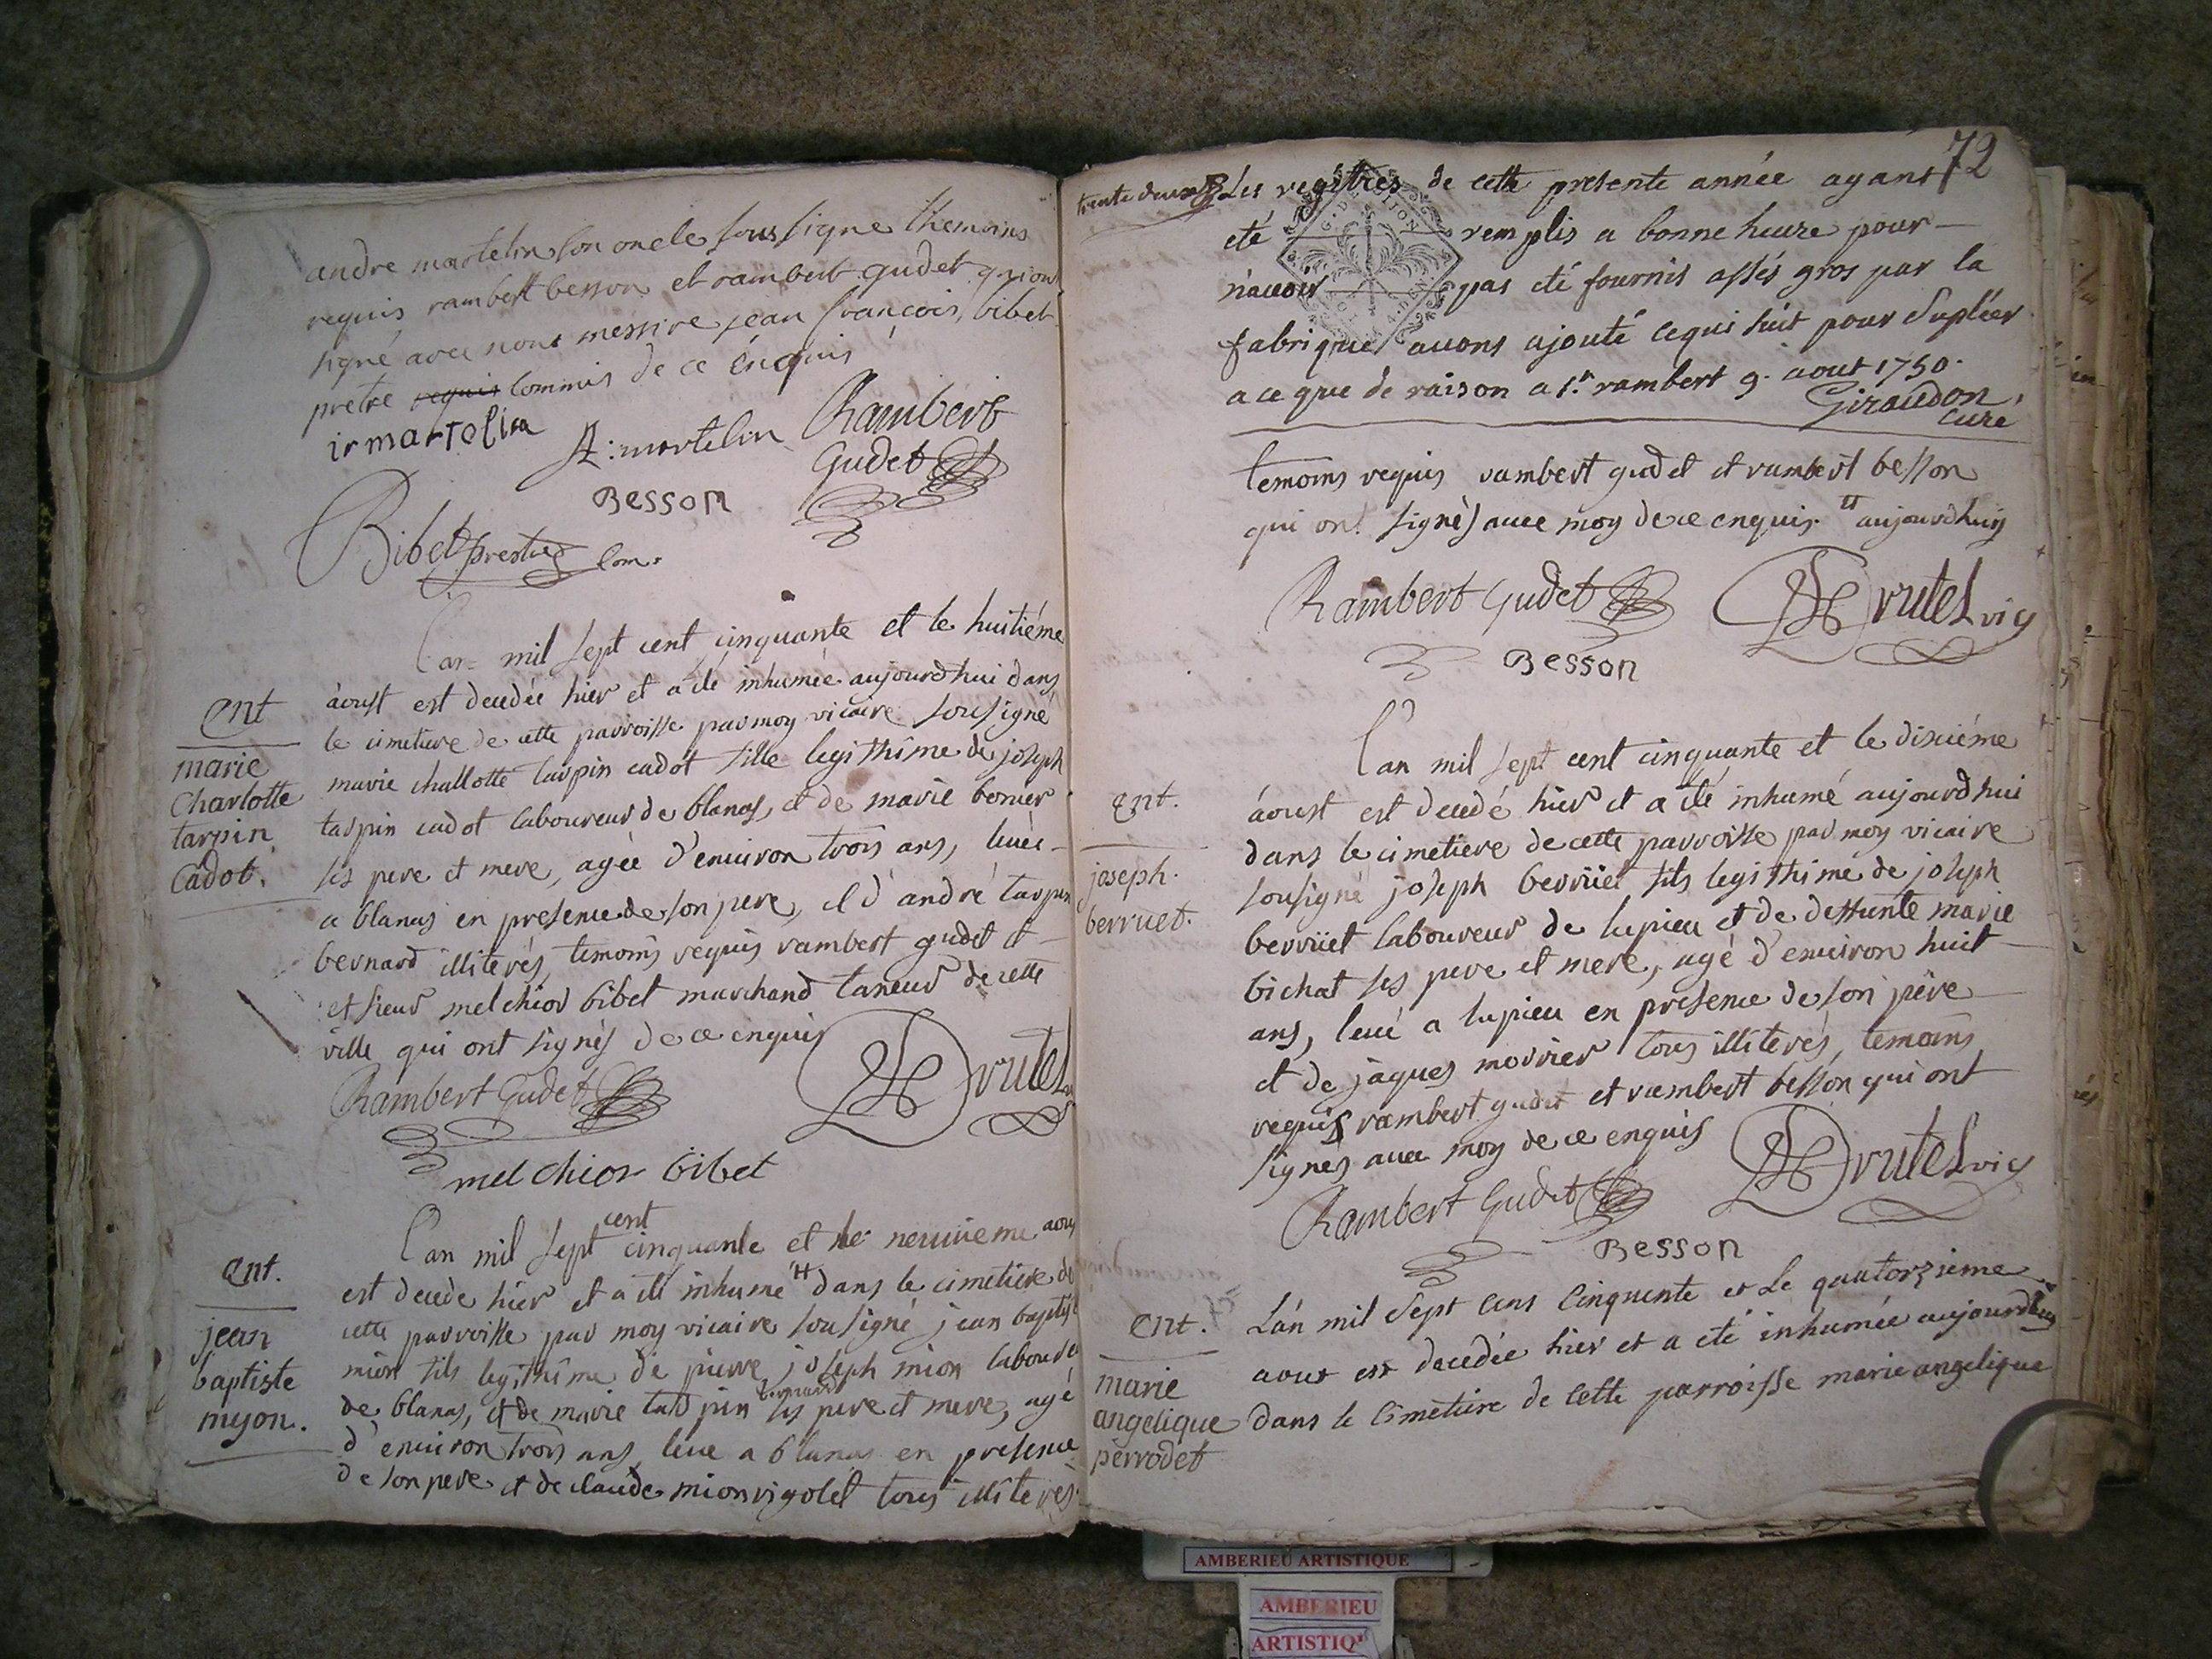 andre martelin son oncle sous signe themoins
requis rambert besson et rambert gudet qui ont
signé avec nous messire jean françois bibet
pretre requis commis de ce énquis
ir martelin
A: martelin
Rambert
Gudet
Besson
Bibet prestre com.
L'an mil sept cent cinquante et le huitiéme
ent
marie
Charlotte
tarpin
Cadot.
àoust est decedée hier et a été inhumée aujourdhui dans
le cimetiere de cette parroisse par moy vicaire sousigné
marie challotte tarpin cadot fille legithîme de joseph
tarpin cadot laboureur de blanas, et de marie bonier
ses pere et mere, agée d'enuiron trois ans, leuée
a blanas en presence de son pere, et d'andré tarpin
bernard illiterés, temoins requis rambert gudet et
et sieur melchior bibet marchand taneur de cette
ville qui ont signés de ce enquis
Rambert Gudet
Drutel
melchior bibet
L'an mil sept cent cinquante et le neuuieme aou
ent.
jean
baptiste
myon.
est decede hier et a été inhumé # dans le cimetiere de
cette parroisse par moy vicaire sousigné jean baptiste
mion fils legithîme de pierre joseph mion laboure
de blanas, et de marie tarpin bernard ses pere et mere, agé
d'enuiron trois ans, leue a blanas en presence
de son pere et de claude mion rigolet tous illiterés
72
trente deux Les registres de cette presente année ayant
eté remplis a bonne heure pour
n'auoir pas eté fournis assés gros par la
fabrique auons ajouté cequi suit pour supléer
a ce que de raison a st. rambert 9. aout 1750.
Giraudon
curé
temoins requis rambert gudet et rambert besson
qui ont signés auec moy de ce enquis. # aujourdhuy
Rambert Gudet
Drutel vic
Besson
L'an mil sept cent cinquante et le dixiéme
ent.
joseph.
berruet.
áoust est decedé hier et a été inhumé aujourdhui
dans le cimetiere de cette parroisse par moy vicaire
sousigné joseph berrüet fils legithime de joseph
berrüet laboureur de lupieu et de deffunte marie
bichat ses pere et mere, agé d'enuiron huit
ans, leué a lupieu en presence de son pére
et de jàques morrier tous illiterés, temoins
requis rambert gudet et rambert besson qui ont
signés auec moy de ce enquis
Rambert Gudet
Drutel vic
Besson
ent.
marie
angelique
perrodet
L'án mil sept cens cinquente et le quatorzieme
aout est decedée hier et a eté inhumée aujourdhuy
dans le cimetiere de cette parroisse marie angelique
AMBERIEU ARTISTIQUE
AMBERIEU
ARTISTIQ